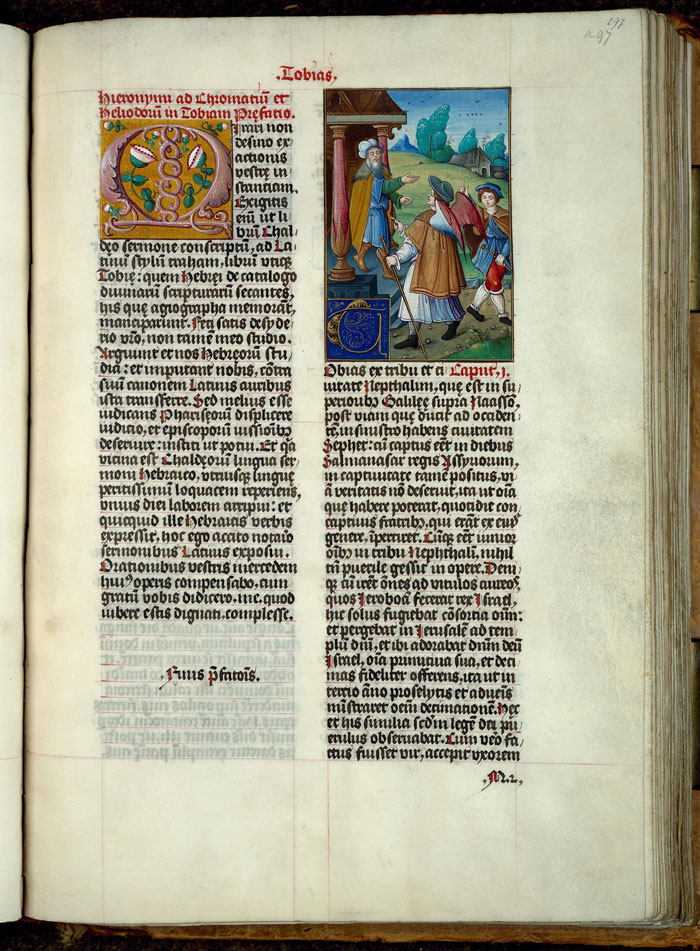 297
297
.Tobias.
Hieronymi ad Chromatiū et
Heliodorū in Tobiam Pręfatio.
Mirari non
desino ex
actionis
vestrę in
stantiam.
Exigitis
eīū ut li
brūm Chal
dęo sermone conscriptū, ad La
tinū stylū traham, librū vtiq3
Tobię: quem Hebręi de catalogo
diuinarū scripturarū secantes,
his quę agiographa memorāt,
manciparūnt. Feci satis desyde
rio vr̄o, non tamē meo studio.
Arguūnt et nos Hebręorū stu
dia: et imputant nobis, cōtra
suū canonem Latinis auribus
ista transferre. Sed melius esse
iudicans Phariseorū displicere
iudicio, et episcoporū iussiōībus
deseruire: institi ut potui. Et q̄a
vicina est Chaldęorūm lingua ser
moni Hebraico, vtriusq3 linguę
peritissimū loquacem reperiens,
vnius diei laborem arripui: et
quicquid ille Hebraicis verbis
expressit, hoc ego accito notario
sermonibus Latinis exposui.
Orationibus vestris mercedem
huiꝰ operis compensabo, cum
gratū vobis didicero, me, quod
iubere estis dignati, complesse.
.Finis p̄fatōīs.
Tobias ex tribu et ci Caput. j.
uitate Nepthalim, quę est in su
perioribꝰ Galileę supra Naasso,
post viam quę ducit ad occiden
tē, in sinistro habens ciuitatem
Sephet: cū captus eēt in diebus
Salmanasar regis Assyriorum,
in captiuitate tamē positus, vi
ā veritatis nō deseruit, ita ut oīa
quę habere poterat, quotidie con
captiuis fratribꝰ, qui erāt ex eiꝰ
genere, īpertiret. Cūq3 eēt iunior
oībꝰ in tribu Nephthali, nihil
tn̄ puerile gessit in opere. Deni
q3 cū irēt ōnes ad vitulos aureos
quos Ieroboā fecerat rex Israel,
hic solus fugiebat cōsortia oīm:
et pergebat in Jerusalē ad tem
plū dn̄i, et ibi adorabat dn̄m deū
Israel, oīa primitiua sua, et deci
mas fideliter offerens, ita ut in
tertio āno proselytis et aduenis
ministraret oēm decimationē. Hęc
et his similia scd̄m legē dei pu
erulus obseruabat. Cum vero fa
ctus fuisset vir, accepit vxorem
.M.2.